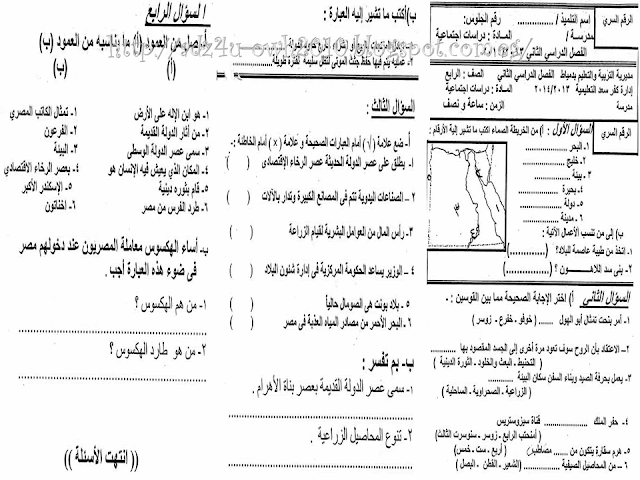 الرقم السري
اسم التلميذ / .......... رقم الجلوس:
مدرسة / المــادة : دراسات إجتماعية
الفصل الدراسي الثاني ٢٠١٣
الرقم السري
مديرية التربية والتعليم بدمياط الفصل الدراسي الثاني الصف : الرابع
إدارة كفر سعد التعليمية ٢٠١٤/٢٠١٣ المــادة : دراسات إجتماعية
مدرسة الزمن : ساعة و نصف
السؤال الأول : أ) من الخريطة الصماء اكتب ما تشير إليه الأرقام :
١- البحر ..........
٢- خليج ..........
٣- بيئة ..........
٤- بحيرة ..........
٥- دولة ..........
٦- مدينة ..........
ب) إلى من تنسب الأعمال الأتية :
١- اتخذ من طيبة عاصمة للبلاد؟ (..............)
٢- بنى سد اللاهـــون ؟ (..............)
السؤال الثاني أ) اختر الإجابة الصحيحة مما بين القوسين .
١- أمر بنحت تمثال أبو الهول ....... ( خوفو - خفرع - زوسر )
٢- الاعتقاد بأن الروح سوف تعود مرة أخرى إلى الجسد المقصود بها ..........
( التحنيط - البعث والخلود - الثورة الدينية )
٣- يعمل بحرفة الصيد وبناء السفن سكان البيئة ..........
( الزراعية - الصحراوية - الساحلية )
٤- حفر الملك .......... قناة سيزوستريس
( أمنحتب الرابع - زوسر - سنوسرت الثالث )
٥- هرم سقارة يتكون من ...... مصاطب ( أربع - ست - خمس )
٦- من المحاصيل الصيفية .......... (الشعير - القطن - البصل )
ب) أكتب ما تشير إليه العبارة :
٢- عملية يتم فيها حفظ جثث الموتى لتظل سليمة لفترة طويلة
السؤال الثالث :
أ- ضع علامة (√) أمام العبارات الصحيحة و علامة (×) أمام الخاطئة :
١- يطلق على عصر الدولة الحديثة عصر الرخاء الإقتصادى ( )
٢- الصناعات اليدوية تتم فى المصانع الكبيرة وتدار بالآلات ( )
٣- رأس المال من العوامل البشرية لقيام الزراعة ( )
٤- الوزير يساعد الحكومة المركزية فى إدارة شئون البلاد ( )
٥- بلاد بونت هى الصومال حالياً ( )
٦- البحر الأحمر من مصادر المياه العذبة فى مصر ( )
ب- بم تفسر :
١- سمى عصر الدولة القديمة بعصر بناة الأهرام .
٢- تنوع المحاصيل الزراعية .
السؤال الرابع
أ) صل من العمود (أ) ما يناسبه من العمود (ب)
(أ) (ب)
١- هو ابن الإله على الأرض ١- تمثال الكاتب المصري
٢- من أثار الدولة القديمة ٢- الفرعون
٣- سمى عصر الدولة الوسطى ٣- البيئة
٤- المكان الذي يعيش فيه الإنسان هو ٤- بعصر الرخاء الاقتصادي
٥- قام بثورة دينية ٥- الإسكندر الأكبر
٦- طرد الفرس من مصر ٦- اخناتون
ب- أساء الهكسوس معاملة المصريون عند دخولهم مصر
فى ضوء هذه العبارة أجب .
١- من هم الهكسوس ؟
٢- من هو طارد الهكسوس ؟
(( انتهت الأسئلة ))